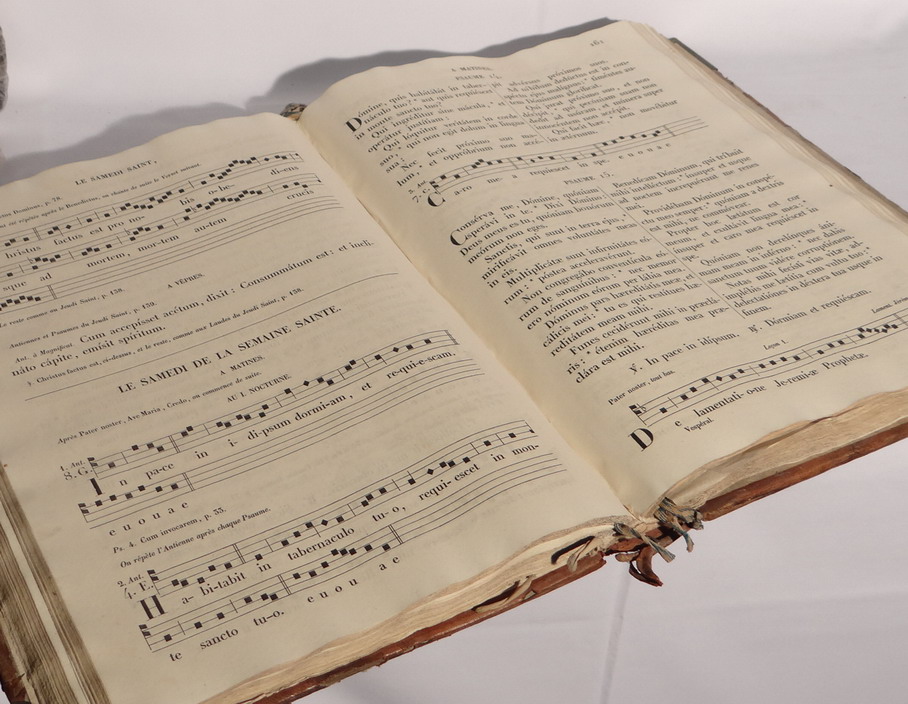 LE SEMAINE SAINT,
Dóminus, p. 78.
hristus factus est pro no- bis o-be- di-ens
sque ad mortem, mor-tem au-tem crucis
A VÊPRES.
Le reste comme au Jeudi Saint, p. 158.
Antiennes et Psaumes du Jeudi Saint, p. 159.
Ant. à Magnificat Cum accepísset acétum, dixit : Consummátum est : et incli-
náto cápite, emísit spíritum.
℣ Christus factus est, ci-dessus, et le reste, comme aux Laudes du Jeudi Saint, p. 158.
LE SAMEDI DE LA SEMAINE SAINTE.
A MATINES.
Après Pater noster, Ave Maria, Credo, on commence de suite.
AU I. NOCTURNE.
1. Ant.
8. G.
I n pa-ce in i- di-psum dormi-am, et re-qui-e-scam.
e u o u a e
Ps. 4. Cum invocarem, p. 55.
On répète l'Antienne après chaque Psaume.
2. Ant.
4. E.
H a- bi-tabit in tabernaculo tu-o, requi-escet in mon-
te sancto tu-o. e u o u a e
161
A MATINES.
PSAUME 14.
Dómine, quis habitábit in taber-
náculo tuo? * aut quis requiéscet
in monte sancto tuo?
Qui ingréditur sine mácula, * et
operátur justítiam :
Qui lóquitur veritátem in corde
suo, * qui non egit dolum in lingua
sua;
Nec fecit próximo suo malum, *
Ca-ro me- a requiescet in spe. e u o u a e
PSAUME 15.
Consérva me, Dómine, quóniam
sperávi in te. * Dixi Dómino :
Deus meus es tu, quóniam bonórum
meórum non eges.
Sanctis, qui sunt in terra ejus, *
mirificávit omnes voluntátes meas
in eis.
Multiplicátæ sunt infirmitátes eó-
rum : * póstea acceleravérunt.
Non congregábo conventícula eó-
rum de sanguínibus : * nec memor
ero nóminum eórum per lábia mea.
Dóminus pars hæreditátis meæ et
cálicis mei : * tu es qui restítues hæ-
reditátem meam mihi.
Funes cecidérunt mihi in præclá-
ris : * étenim hæréditas mea præ-
clára est mihi.
Benedícam Dóminum, qui tríbuit
mihi intelléctum : * ínsuper et usque
ad noctem increpuérunt me renes
mei.
Providébam Dóminum in conspé-
ctu meo semper, * quóniam a dextris
est mihi, ne commóvear.
Propter hoc lætátum est cor
meum, et exultávit lingua mea : *
ínsuper et caro mea requiéscet in
spe.
Quóniam non derelínques áni-
mam meam in inférno : * nec dabis
Sanctum tuum vidére corruptiónem.
Notas mihi fecísti vias vitæ, ad-
implébis me lætítia cum vultu tuo : *
delectatiónes in déxtera tua usque in
finem.
℣. In pace in idípsum. ℟. Dórmiam et requiéscam.
Pater noster, tout bas. Leçon 1.
D e lamentati-o-ne Je-remi-æ Prophetæ.
Vespéral.